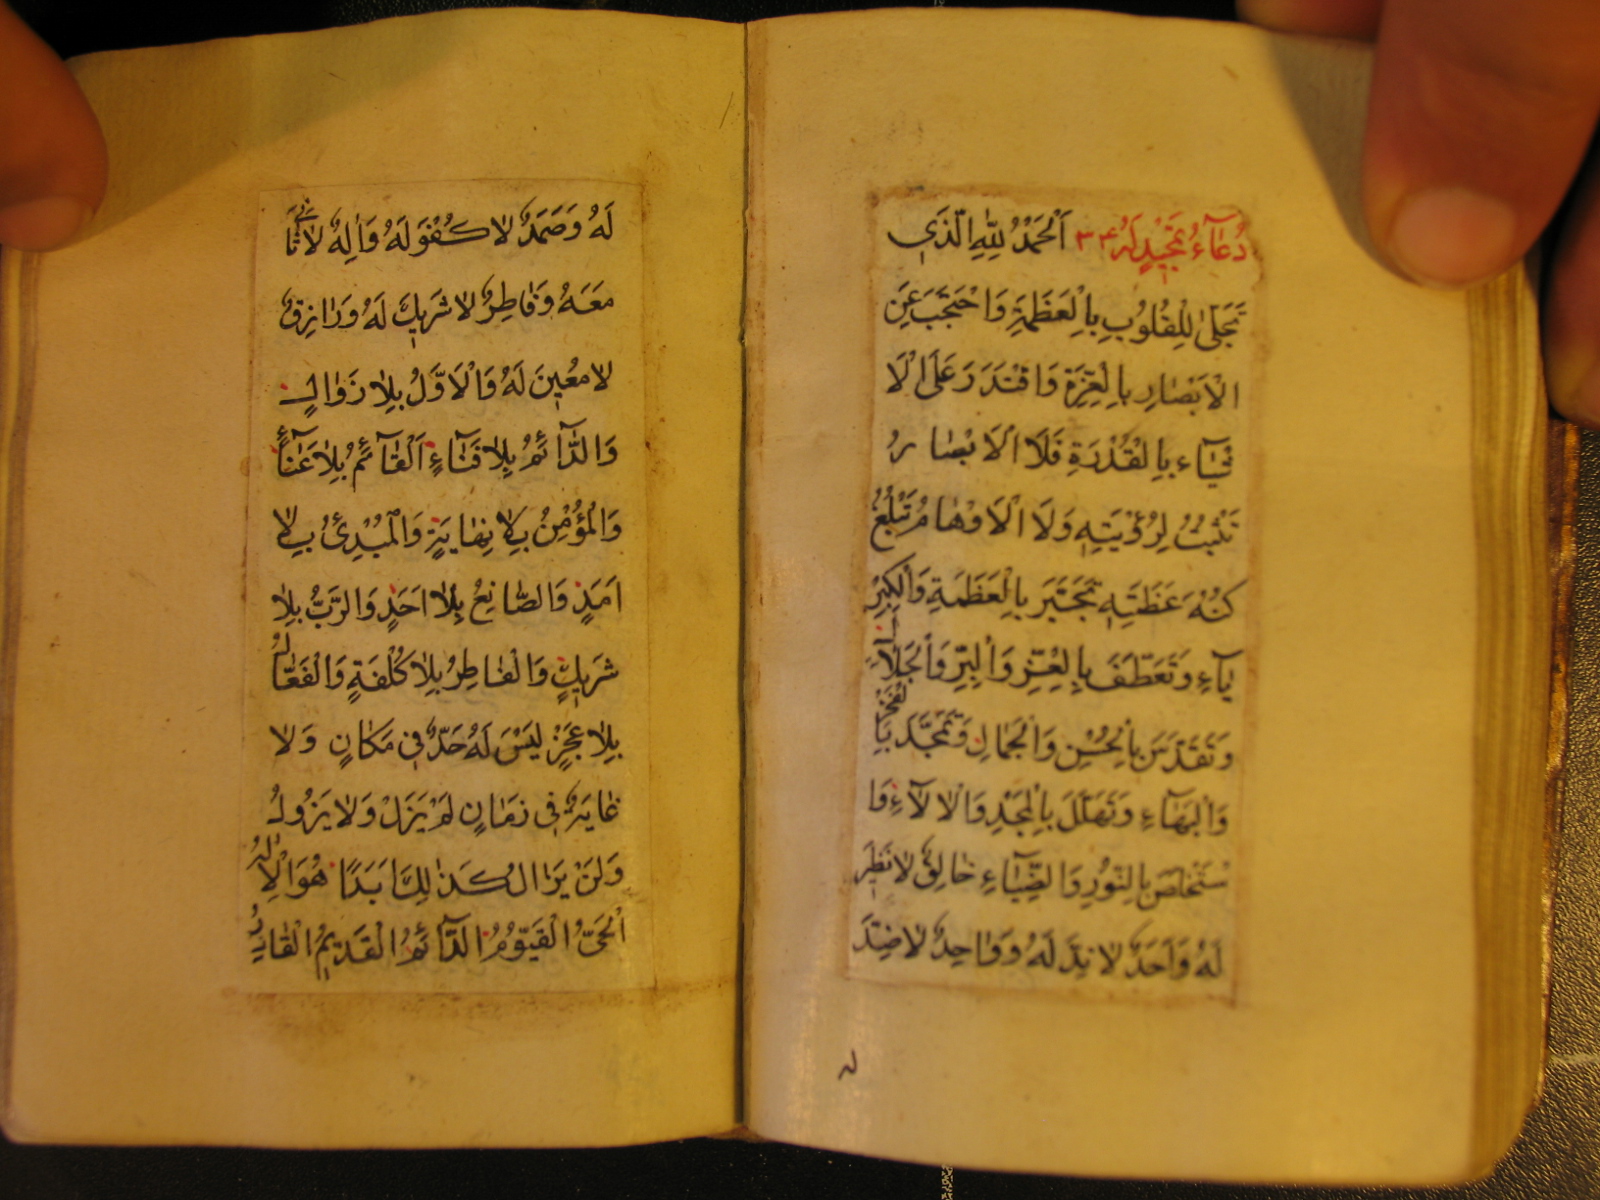 دُعَآءُ تَمْجِيْدٍ لَهُ ٣٤ اَلْحَمْدُ لِلّٰهِ الَّذِي
تَجَلّٰى لِلْقُلُوْبِ بِالْعَظَمَةِ وَاحْتَجَبَ عَنِ
الْاَبْصَارِ بِالْعِزَّةِ وَاقْتَدَرَ عَلَى الْاَ
شْيَآءِ بِالْقُدْرَةِ فَلَا الْاَبْصَارُ
تَثْبُتُ لِرُؤْيَتِهِ وَلَا الْاَوْهَامُ تَبْلُغُ
كُنْهَ عَظَمَتِهِ تَجَبَّرَ بِالْعَظَمَةِ وَالْكِبْرِ
يَآءِ وَتَعَطَّفَ بِالْعِزِّ وَالْبِرِّ وَالْجَلَالِ
وَتَقَدَّسَ بِالْحُسْنِ وَالْجَمَالِ وَتَمَجَّدَ بِالْفَخْرِ
وَالْبَهَآءِ وَتَهَلَّلَ بِالْمَجْدِ وَالْاٰلَآءِ وَا
سْتَخْلَصَ بِالنُّوْرِ وَالضِّيَآءِ خَالِقٌ لَا نَظِيْرَ
لَهُ وَاَحَدٌ لَا نِدَّ لَهُ وَوَاحِدٌ لَا ضِدَّ
لَهُ وَصَمَدٌ لَا كُفْوَ لَهُ وَاِلٰهٌ لَا ثَانِيَ
مَعَهُ وَفَاطِرٌ لَا شَرِيْكَ لَهُ وَرَازِقٌ
لَا مُعِيْنَ لَهُ وَالْاَوَّلُ بِلَا زَوَالٍ
وَالدَّآئِمُ بِلَا فَنَآءٍ اَلْقَآئِمُ بِلَا عَنَآءٍ
وَالْمُؤْمِنُ بِلَا نِهَايَةٍ وَالْمُبْدِئُ بِلَا
اَمَدٍ وَالصَّانِعُ بِلَا اَحَدٍ وَالرَّبُّ بِلَا
شَرِيْكٍ وَالْفَاطِرُ بِلَا كُلْفَةٍ وَالْفَعَّالُ
بِلَا عَجْزٍ لَيْسَ لَهُ حَدٌّ فِي مَكَانٍ وَلَا
غَايَةٌ فِي زَمَانٍ لَمْ يَزَلْ وَلَا يَزُوْلُ
وَلَنْ يَزَالَ كَذٰلِكَ اَبَدًا هُوَ الْاِلٰهُ
الْحَيُّ الْقَيُّوْمُ الدَّآئِمُ الْقَدِيْمُ الْقَادِرُ